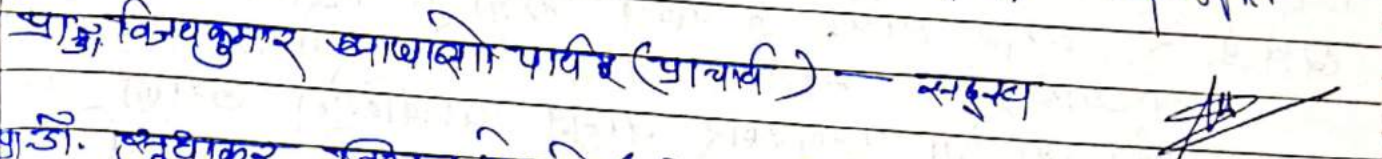 प्रा.डॉ. विजयकुमार आप्पासो पाटील (प्राचार्य) — सदस्य
प्रा.डॉ. सुधाकर